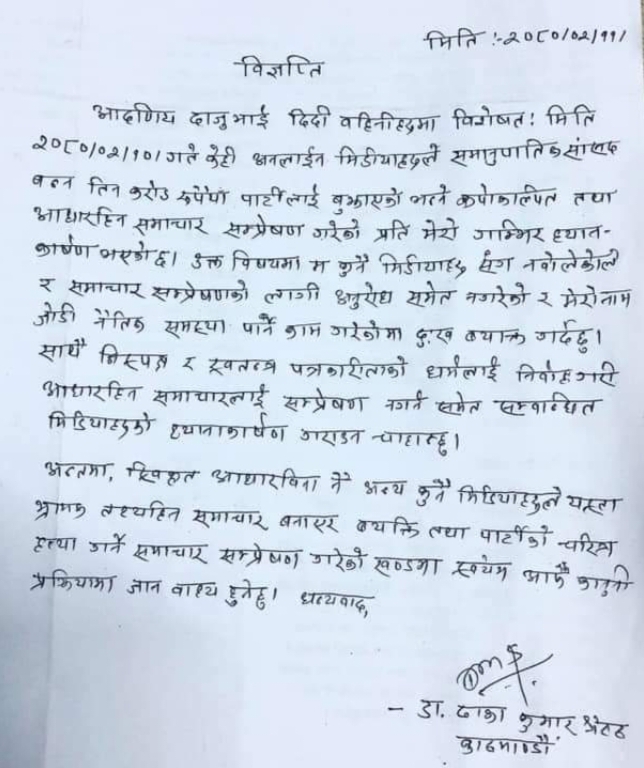 मिति :- २०८०/०२/११/
विज्ञप्ति
आदणिय दाजुभाई दिदी वहिनीहरुमा विशेषत! मिति
२०८०/०२/१०/ गते केही अनलाईन मिडीयाहरुले समानुपातिक सांसद
बन्न तिन करोड रुपैयाँ पार्टीलाई बुझाएको भन्ने कपोकल्पित तथा
आधारहिन समाचार सम्प्रेषण गरेको प्रति मेरो गम्भिर ध्यान-
कार्षण भएको छ। उक्त विषयमा म कुनै मिडीयाहरु संग नवोलेकोले
र समाचार सम्प्रेषणको लागी अनुरोध समेत नगरेको र मेरो नाम
जोडी नैतिक समस्या पार्ने काम गरेकोमा दुःख ब्यक्त गर्दछु।
साथै निस्पक्ष र स्वतन्त्र पत्रकारीताको धर्मलाई निर्वाह गरी
आधारहिन समाचारलाई सम्प्रेषण नगर्न समेत सम्वन्धित
मिडियाहरुको ध्यानाकार्षण गराउन चाहान्छु।
अन्तमा, आधारविना नै अन्य कुनै मिडियाहरुले यस्ता
भ्रामक तथ्यहिन समाचार बनाएर ब्यक्ति तथा पार्टीको चरित्र
हत्या गर्ने समाचार सम्प्रेषण गरेको खण्डमा स्वयम आफै कानुनी
प्रक्रियामा जान वाध्य हुनेछु। धन्यवाद,
- डा. ढाका कुमार श्रेष्ठ
काठमाण्डौं